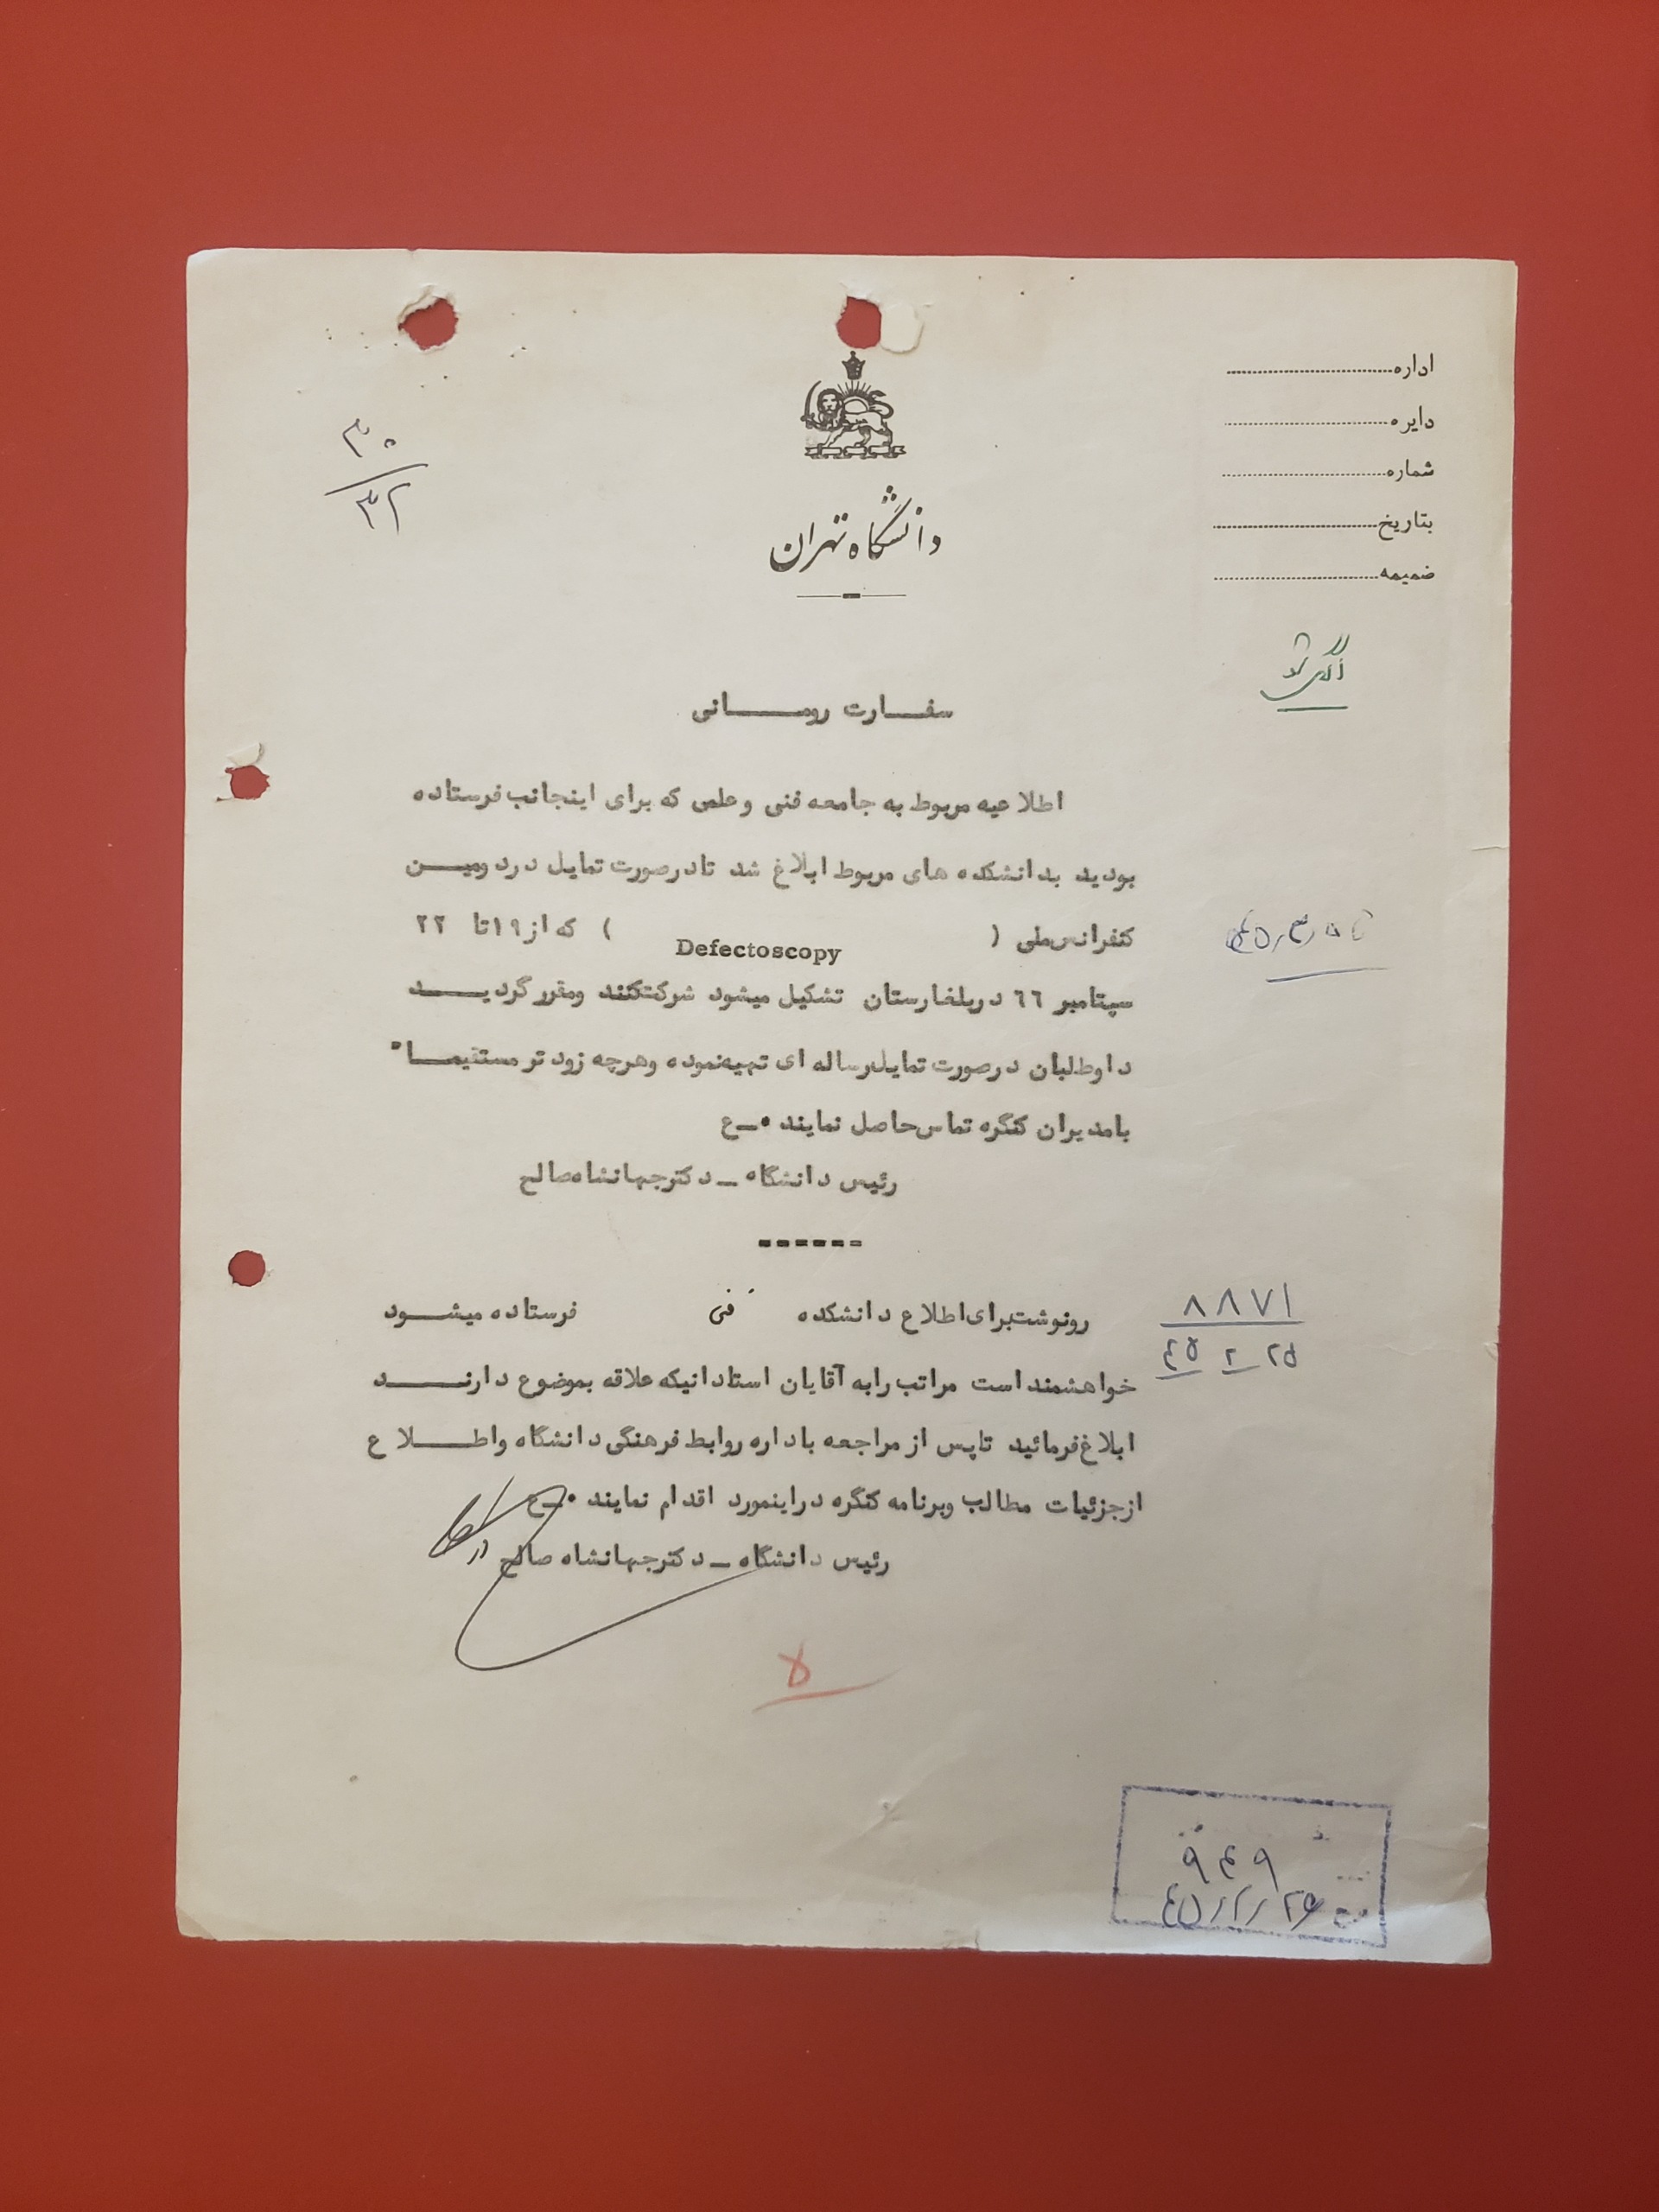 اداره
دایره
شماره
بتاریخ
ضمیمه
۳۰
۳۲
دانشگاه تهران
آگهی شد
سفارت رومانی
اطلاعیه مربوط به جامعه فنی و علمی که برای اینجانب فرستاده
بودید بدانشکده های مربوط ابلاغ شد تا درصورت تمایل در دومین
کنفرانس ملی ( Defectoscopy ) که از ۱۹ تا ۲۲
سپتامبر ٦٦ در بلغارستان تشکیل میشود شرکت کنند و مقرر گردید
داوطلبان درصورت تمایل رساله ای تهیه نموده و هرچه زود تر مستقیماً
با مدیران کنگره تماس حاصل نمایند ۰ـع
رئیس دانشگاه ـ دکتر جهانشاه صالح
------
رونوشت برای اطلاع دانشکده فنی فرستاده میشود
۸۸۷۱
۲۵ ـ ۲ ـ ٤۵
خواهشمند است مراتب را به آقایان استادانیکه علاقه بموضوع دارند
ابلاغ فرمائید تا پس از مراجعه باداره روابط فرهنگی دانشگاه و اطلاع
از جزئیات مطالب و برنامه کنگره در اینمورد اقدام نمایند ۰ـع
رئیس دانشگاه ـ دکتر جهانشاه صالح
۹٤۹
٤۵/۲/۲۶